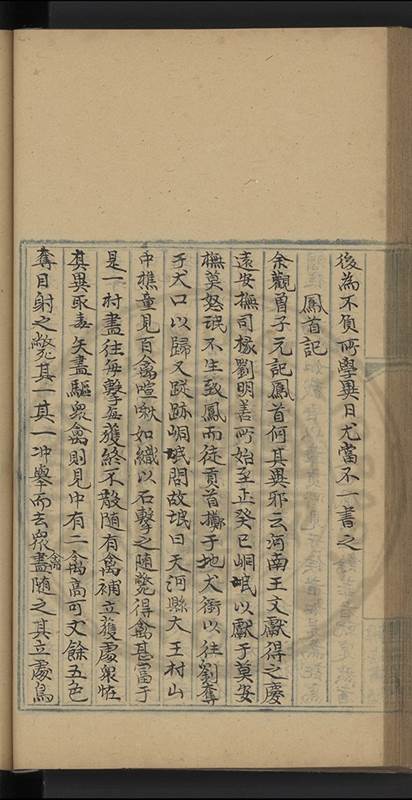 後為不負所學異日尤當不一書之
鳳首記
余觀曾子元記鳳首何其異邪云河南王文獻得之慶
遠安撫司掾劉明善所始至正癸巳峒氓以獻于莫安
撫莫怒氓不生致鳳而徒貢首擲于地犬銜以往劉奪
于犬口以歸又蹤跡峒氓問故氓曰天河縣大王村山
中樵童見百禽喧啾如織以石擊之隨斃得禽甚富于
是一村盡往每擊益獲終不散隨有禽補立獲處衆恠
其異取毒矢盡驅衆禽則見中有二禽高可丈餘五色
奪目射之斃其一其一冲舉而去衆禽盡隨之其立處鳥